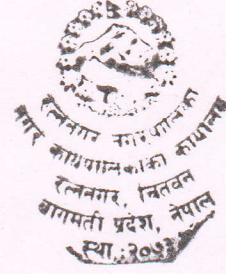 रत्ननगर नगरपालिका
नगर कार्यपालिकाको कार्यालय
रत्ननगर, चितवन
बागमती प्रदेश, नेपाल
स्था.:२०५३